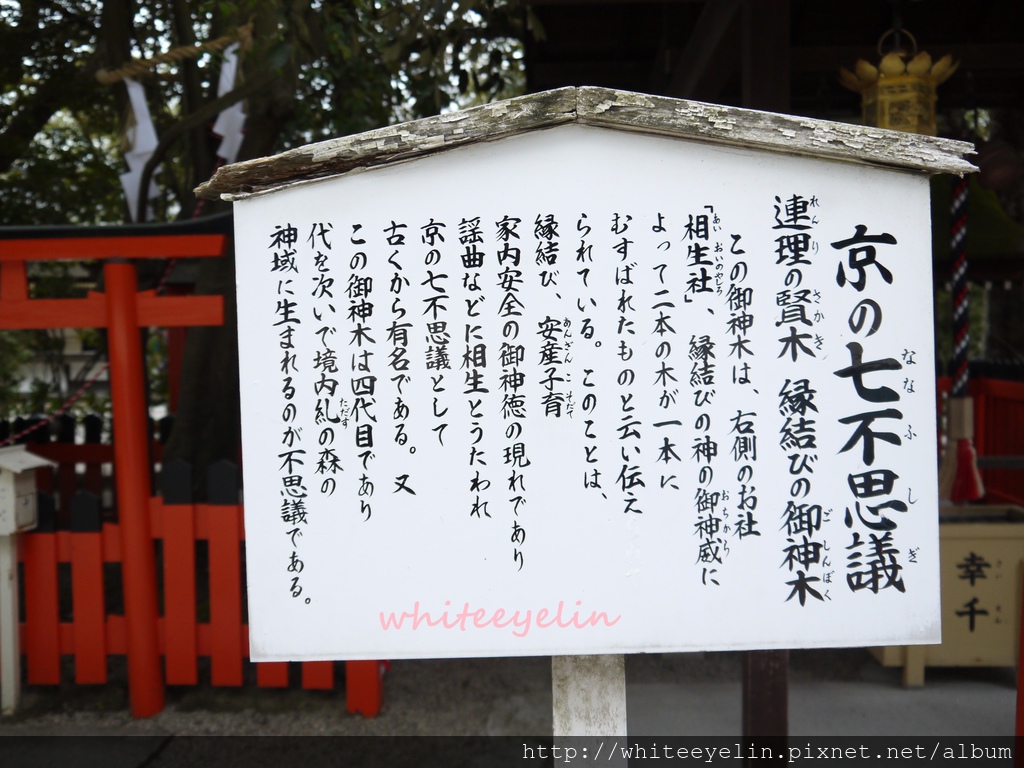 京の七不思議
連理の賢木 縁結びの御神木
この御神木は、右側のお社
「相生社」、縁結びの神の御神威に
よって二本の木が一本に
むすばれたものと云い伝え
られている。このことは、
縁結び、安産子育
家内安全の御神徳の現れであり
謡曲などに相生とうたわれ
京の七不思議として
古くから有名である。又
この御神木は四代目であり
代を次いで境内糺の森の
神域に生まれるのが不思議である。
なな ふ し ぎ
れん り さか き ご しんぼく
あい おいのやしろ おちから
あんざん こ そだて
ただす
幸
千
whiteeyelin
http://whiteeyelin.pixnet.net/album